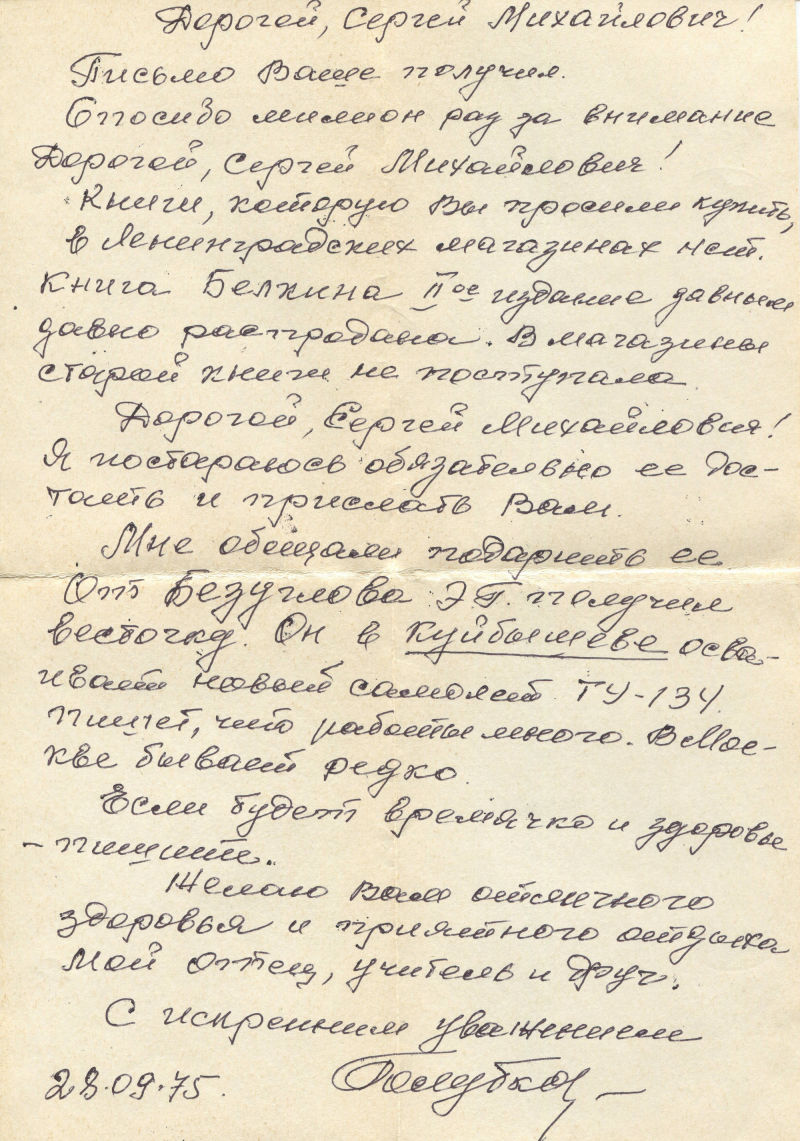 Дорогой, Сергей Михайлович!
Письмо Ваше получил.
Спасибо милион раз за внимание
Дорогой, Сергей Михайлович!
Книги, которую Вы просили купить,
в Ленинградских магазинах нет.
Книга Белкина II ое издание давным
давно распродана. В магазины
старой книги не поступала
Дорогой, Сергей Михайлович!
Я постараюсь обязательно ее дос-
тать и прислать Вам.
Мне обещали подарить ее
От Безуглова Э.Г. получил
весточку. Он в Куйбышеве осва-
ивает новый самолет ТУ-134
пишет, что работы много. В Мос-
кве бывает редко.
Если будет времячко и здоровье
- пишите..
Желаю Вам отличного
здоровья и приятного отдыха
Мой отец, учитель и друг.
С искренним уважением
28.09.75. Голубков